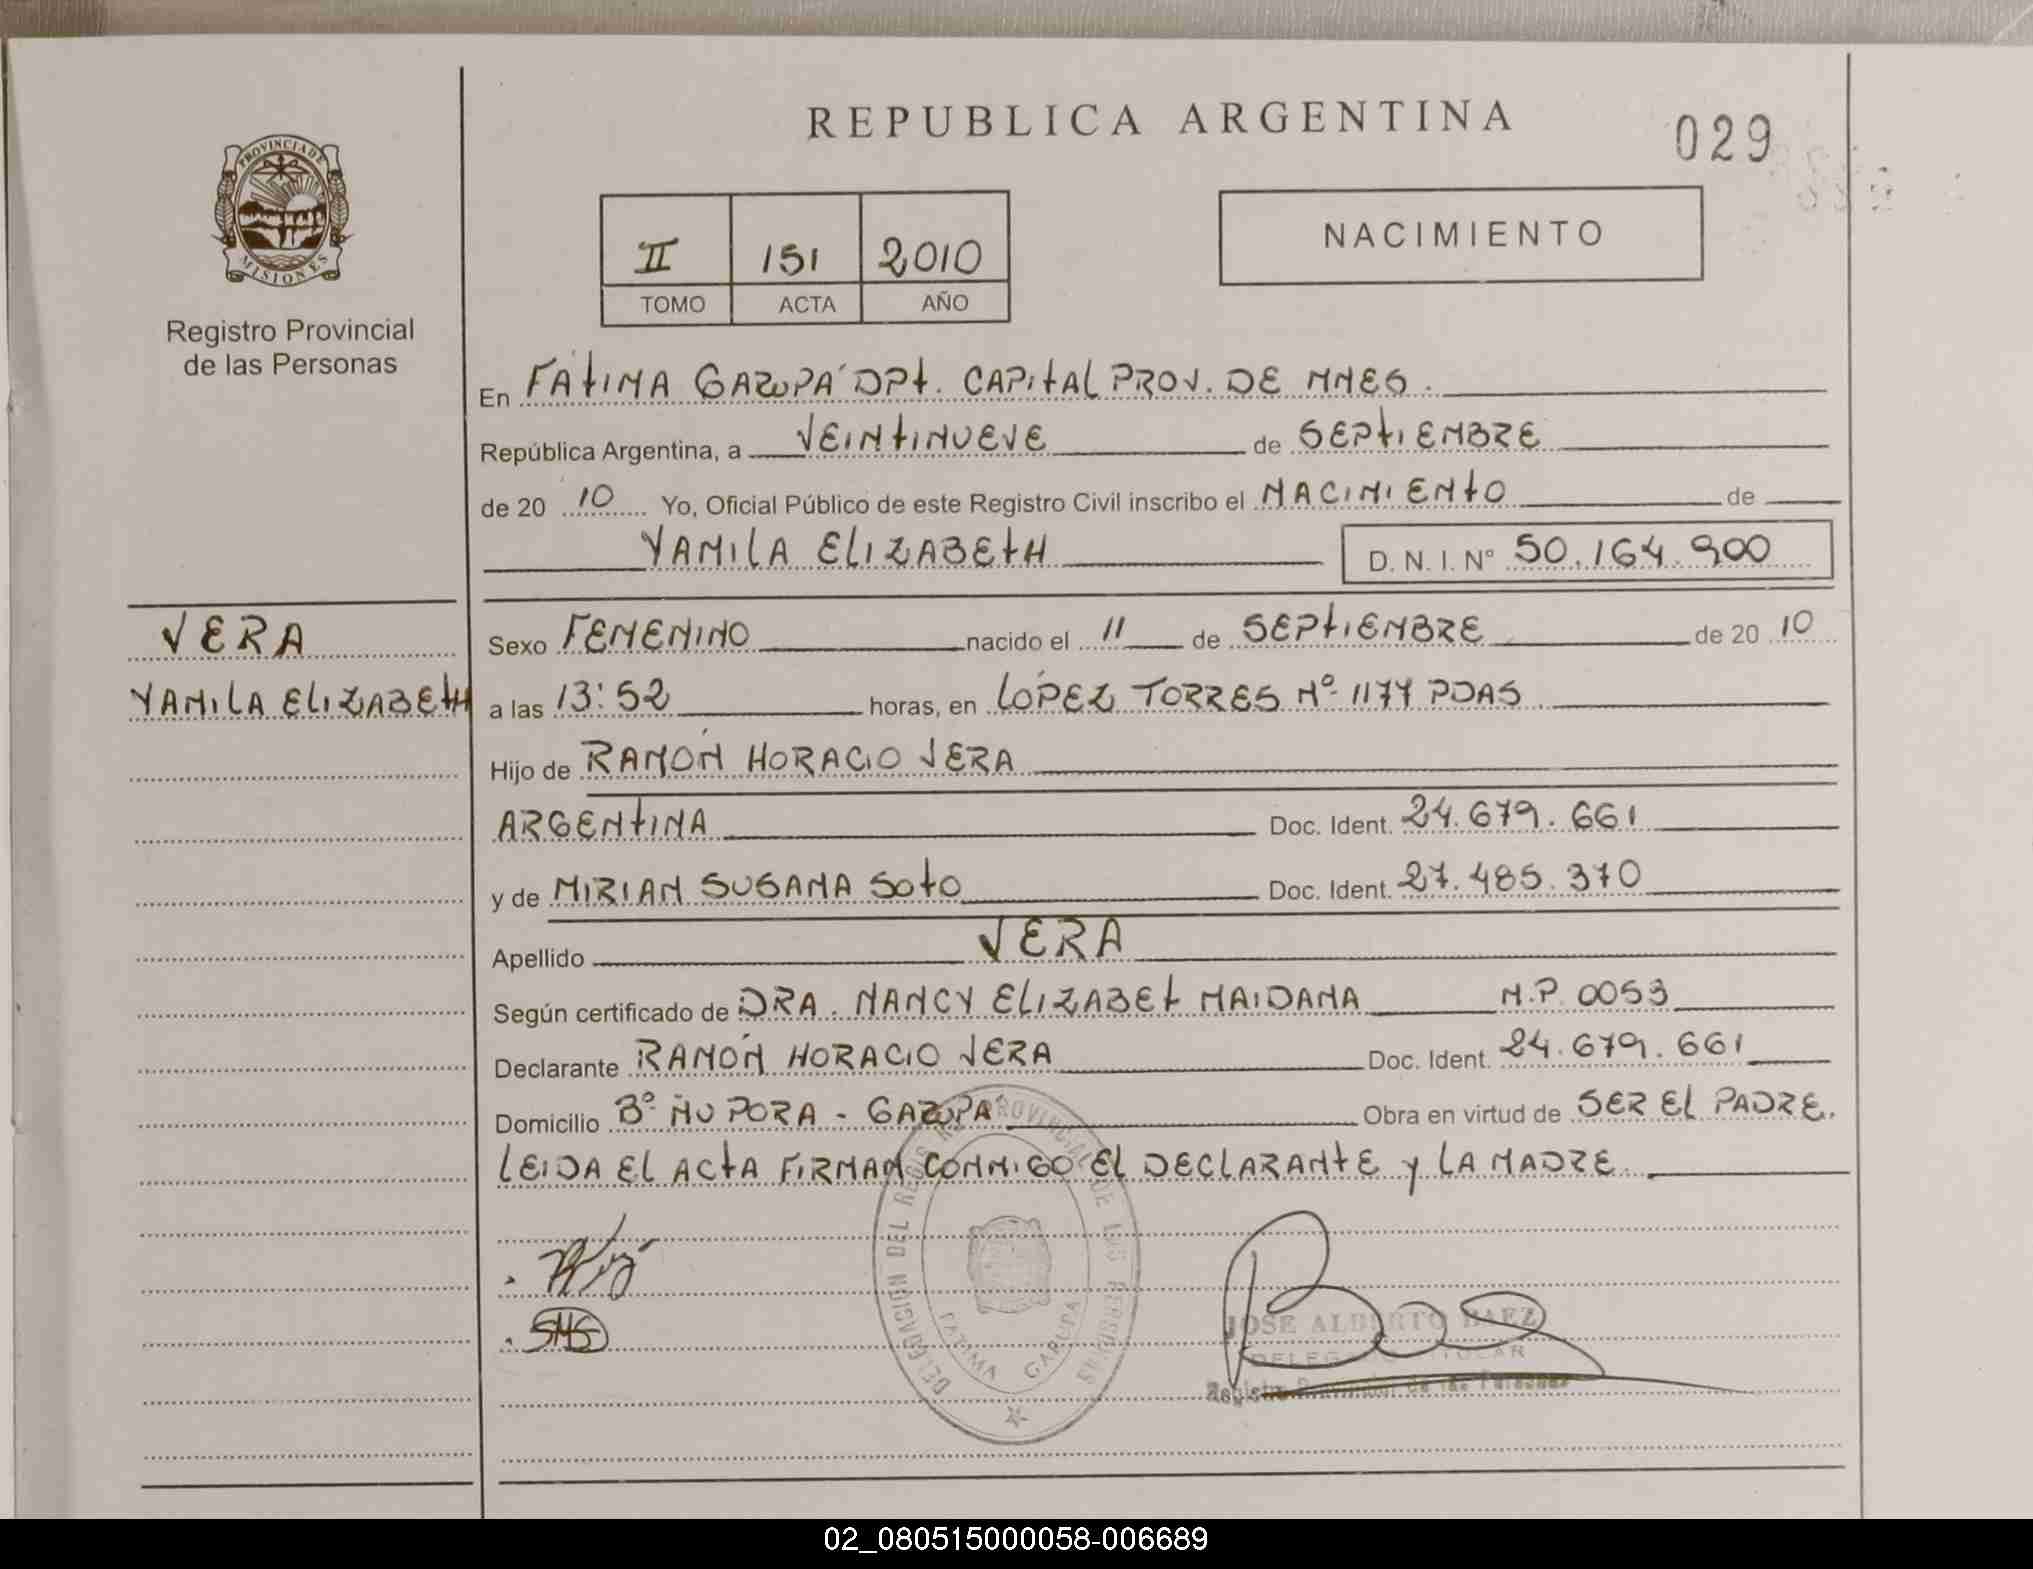 REPUBLICA ARGENTINA
029
PROVINCIA DE
MISIONES
Registro Provincial
de las Personas
II 151 2010
TOMO ACTA AÑO
NACIMIENTO
En FÁTIMA GARUPÁ DPT. CAPITAL PROV. DE MNES.
República Argentina, a VEINTINUEVE de SEPTIEMBRE
de 20 10 Yo, Oficial Público de este Registro Civil inscribo el NACIMIENTO de
YAMILA ELIZABETH D. N. I. N° 50.164.900
VERA
YAMILA ELIZABETH
Sexo FEMENINO nacido el 11 de SEPTIEMBRE de 20 10
a las 13:52 horas, en LÓPEZ TORRES Nº 1177 PDAS.
Hijo de RAMÓN HORACIO VERA
ARGENTINA Doc. Ident. 24.679.661
y de MIRIAN SUSANA SOTO Doc. Ident. 27.485.370
Apellido VERA
Según certificado de DRA. NANCY ELIZABET MAIDANA M.P. 0053
Declarante RAMÓN HORACIO VERA Doc. Ident. 24.679.661
Domicilio Bº ÑU PORA - GARUPÁ Obra en virtud de SER EL PADRE.
LEIDA EL ACTA FIRMAN CONMIGO EL DECLARANTE Y LA MADRE
DELEGACION DEL REGISTRO PROVINCIAL DE LAS PERSONAS
FATIMA GARUPA
SMS
JOSE ALBERTO BAEZ
DELEGADO TITULAR
Registro Provincial de las Personas
02_080515000058-006689